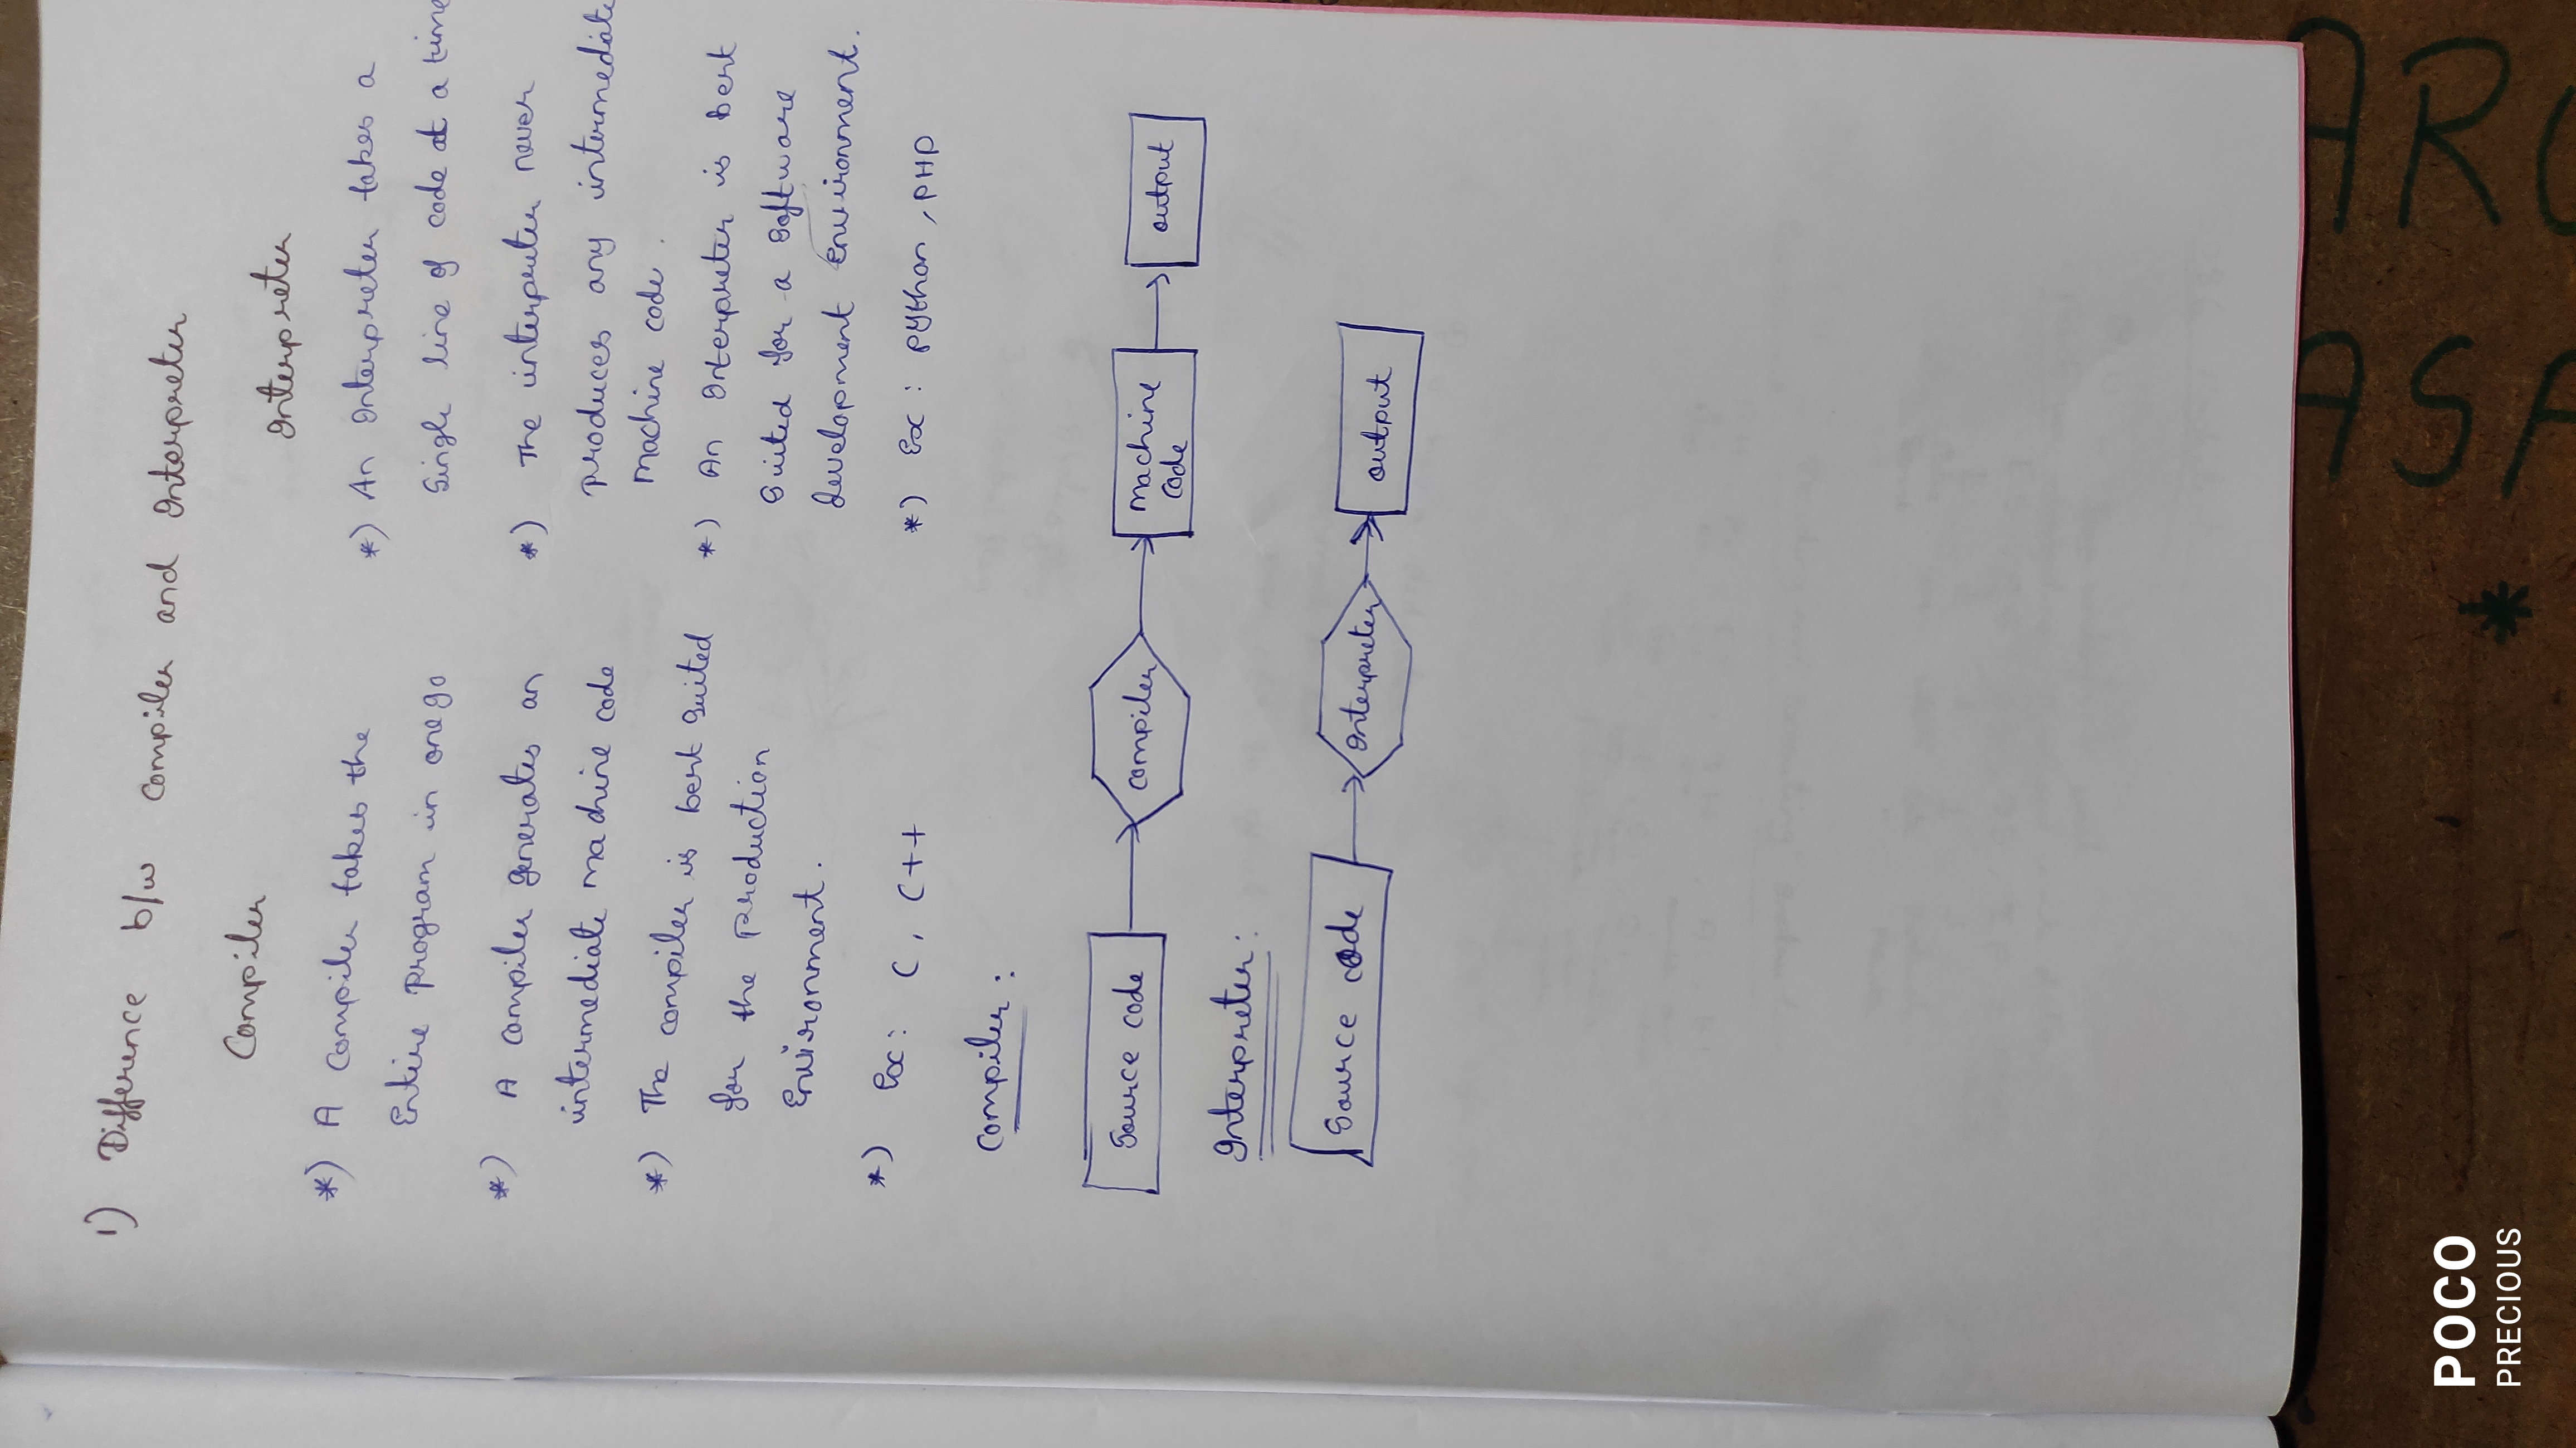 1) Difference b/w compiler and Interpreter
Compiler
*) A compiler takes the
Entire program in one go
*) A compiler generates an
intermediate machine code
*) The compiler is best suited
for the production
Environment.
*) Ex: C, C++
Interpreter
*) An Interpreter takes a
Single line of code at a time
*) The interpreter never
produces any intermediate
Machine code.
*) An Interpreter is best
Suited for a software
development Environment.
*) Ex: python, PHP
Compiler:
Source code
compiler
machine
code
output
Interpreter:
Source code
Interpreter
output
POCO
PRECIOUS